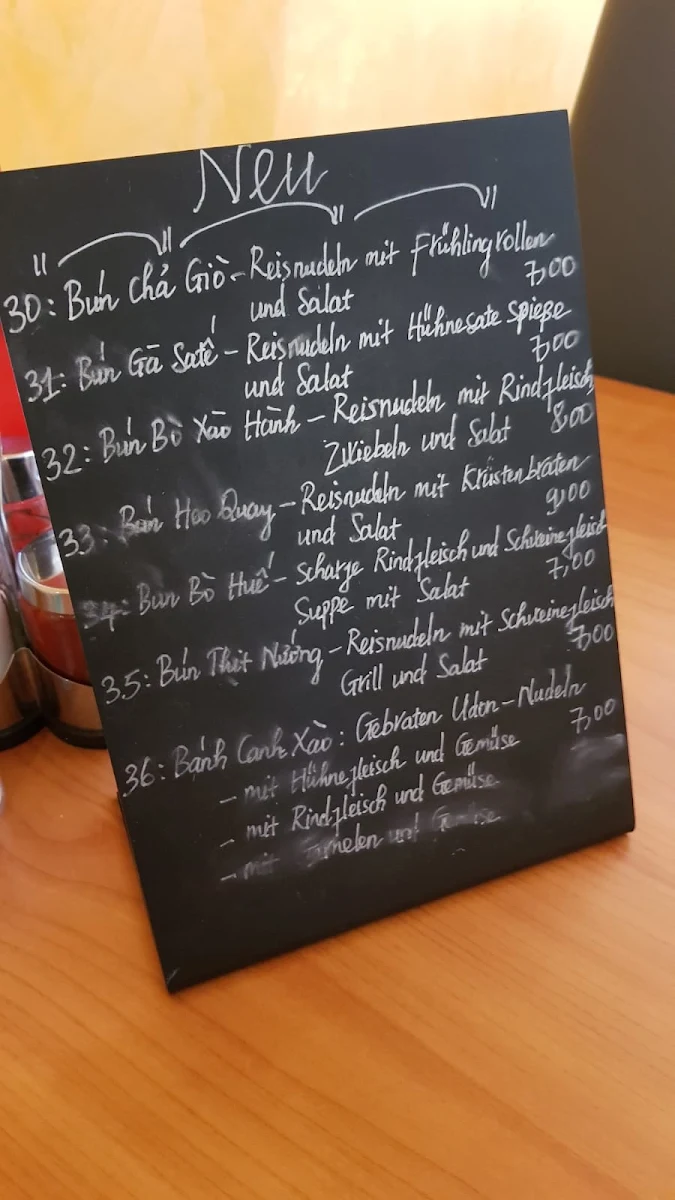 Neu
30: Bún Chả Giò - Reisnudeln mit Frühlingrollen
und Salat 7,00
31: Bún Gà Saté - Reisnudeln mit Hühnesate spieße
und Salat 7,00
32: Bún Bò Xào Hành - Reisnudeln mit Rindfleisch,
Zwiebeln und Salat 8,00
33: Bún Heo Quay - Reisnudeln mit Krüstenbraten
und Salat 9,00
34: Bún Bò Huế - Scharfe Rindfleisch und Schweinefleisch
Suppe mit Salat 7,00
35: Bún Thịt Nướng - Reisnudeln mit Schweinefleisch
Grill und Salat 7,00
36: Bánh Canh Xào: Gebraten Udon-Nudeln
- mit Hühnefleisch und Gemüse 7,00
- mit Rindfleisch und Gemüse
- mit und Gemüse